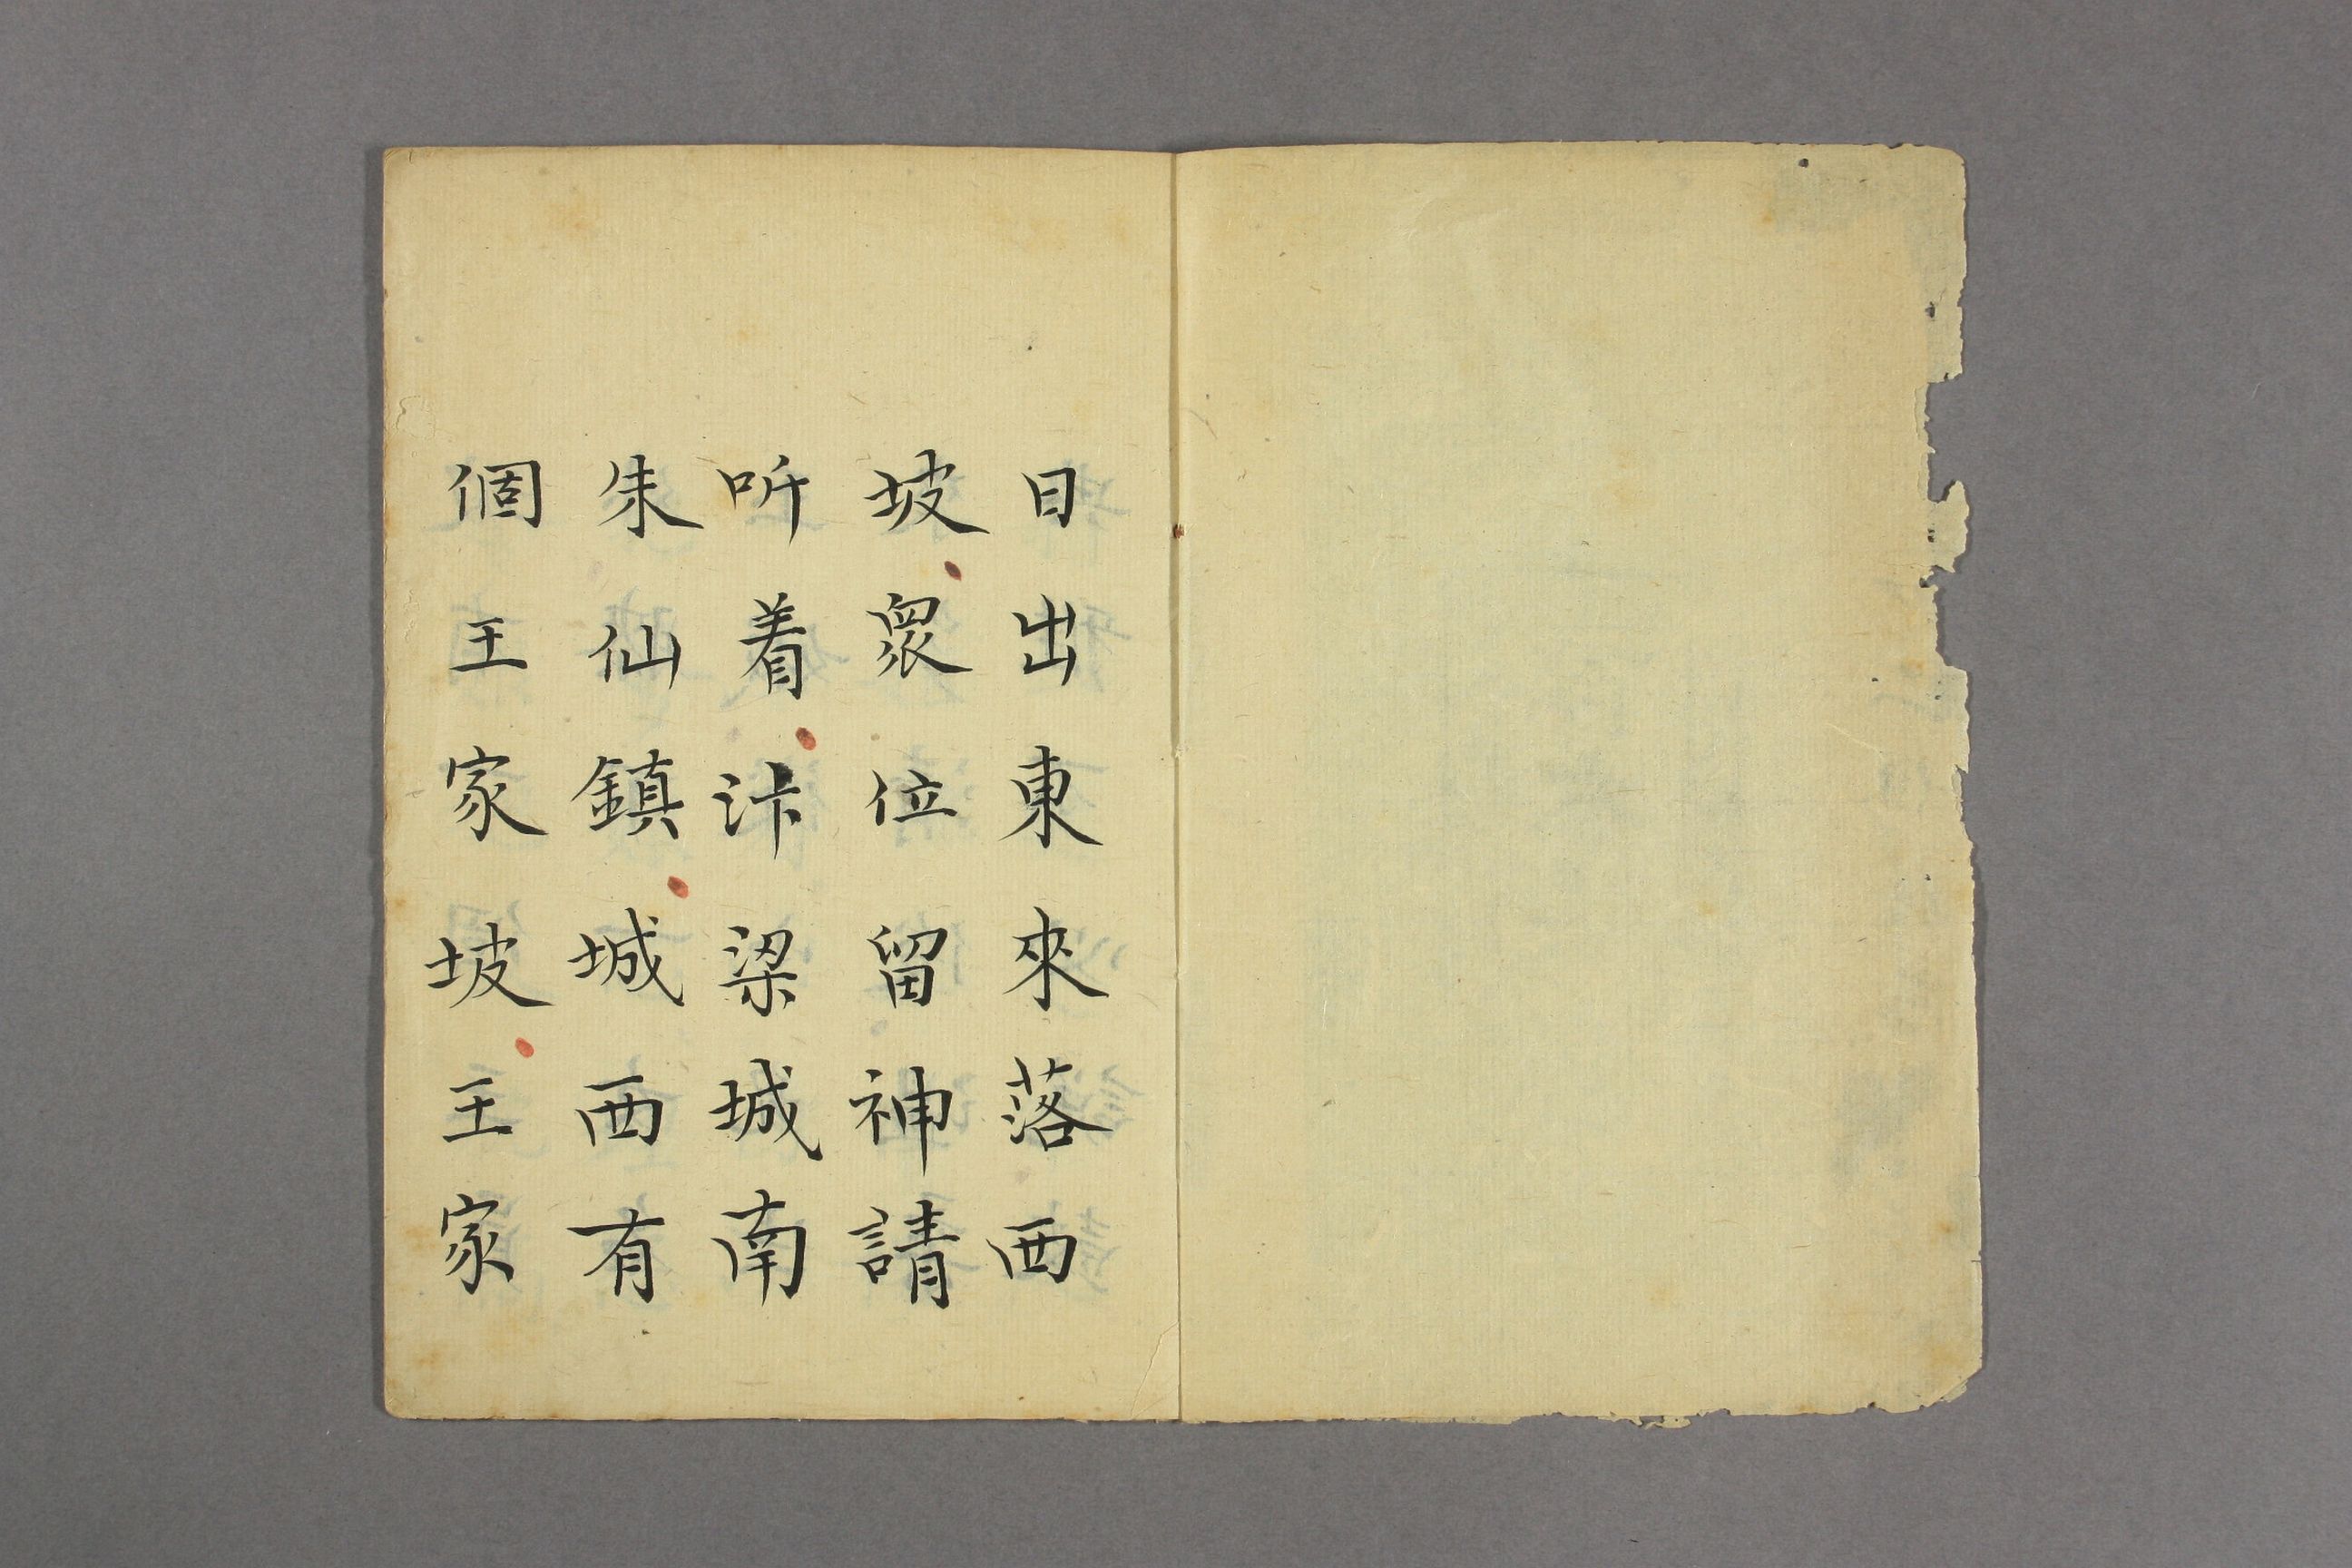 日出東來落西
坡衆位留神請
听着汴梁城南
朱仙鎮城西有
個王家坡王家